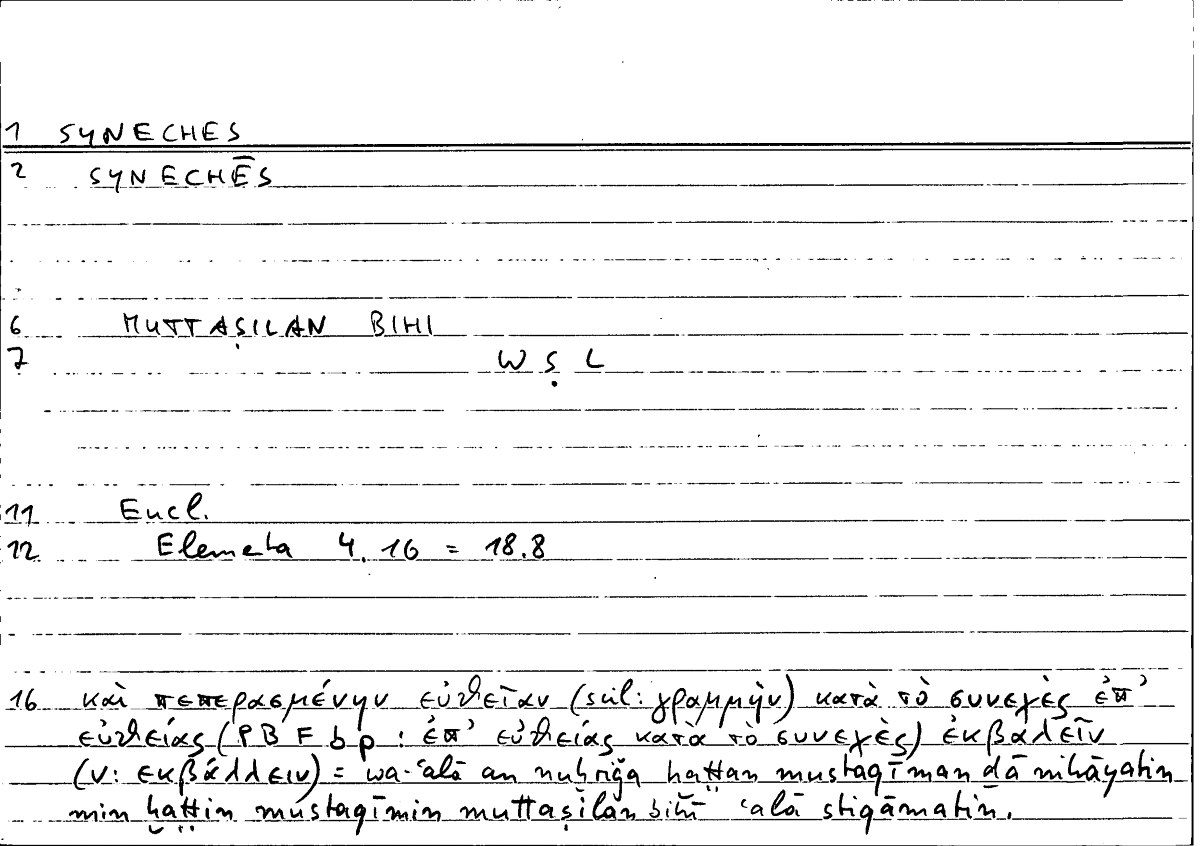 1 SYNECHES
2 SYNECHĒS
6 MUTTAṢILAN BIHI
7 W Ṣ L
11 Eucl.
12 Elementa 4.16 = 18.8
16 καὶ πεπερασμένην εὐθεῖαν (scil: γραμμὴν) κατὰ τὸ συνεχὲς ἐπ’
εὐθείας (P B F b p : ἐπ’ εὐθείας κατὰ τὸ συνεχὲς) ἐκβαλεῖν
(V: ἐκβάλλειν) = wa-ʿalā an nuḫriǧa ḫaṭṭan mustaqīman ḏā nihāyatin
min ḫaṭṭin mustaqīmin muttaṣilan bihī ʿalā stiqāmatin.